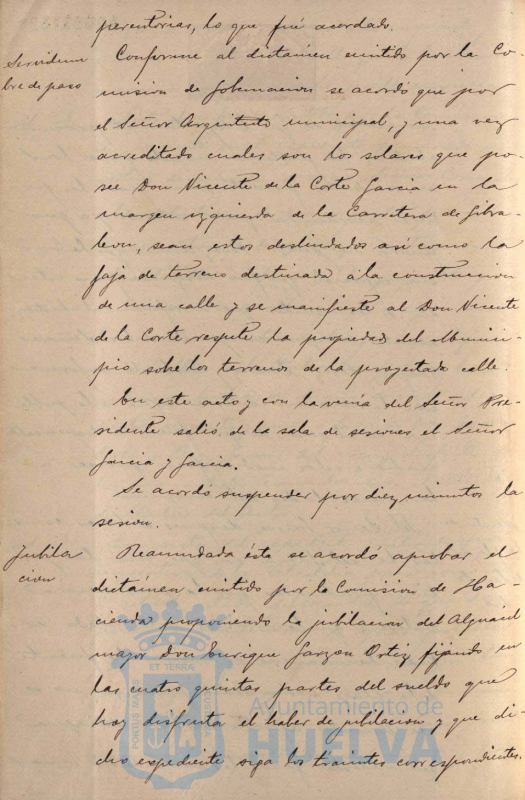 perentorias, lo que fué acordado.
Servidum
bre de paso
Conforme al dictámen emitido por la Co-
mision de Gobernacion se acordó que por
el Señor Arquitecto municipal, y una vez
acreditado cuales son los solares que po-
see Don Vicente de la Corte Garcia en la
margen izquierda de la Carretera de Gibra-
leon, sean estos deslindados asi como la
faja de terreno destinada á la construccion
de una calle y se manifieste al Don Vicente
de la Corte respete la propiedad del Munici-
pio sobre los terrenos de la proyectada calle.
En este acto y con la venia del Señor Pre-
sidente salió de la sala de sesiones el Señor
Garcia y Garcia.
Se acordó suspender por diez minutos la
sesion.
Jubila
cion
Reanudada ésta se acordó aprobar el
dictámen emitido por la Comision de Ha-
cienda proponiendo la jubilacion del Alguacil
mayor Don Enrique Garzon Ortiz fijando en
las cuatro quintas partes del sueldo que
hoy disfruta el haber de jubilacion y que di-
cho expediente siga los trámites correspondientes.
PORTUS MARIS
ET TERRAE
CUSTODIA
Ayuntamiento de
HUELVA